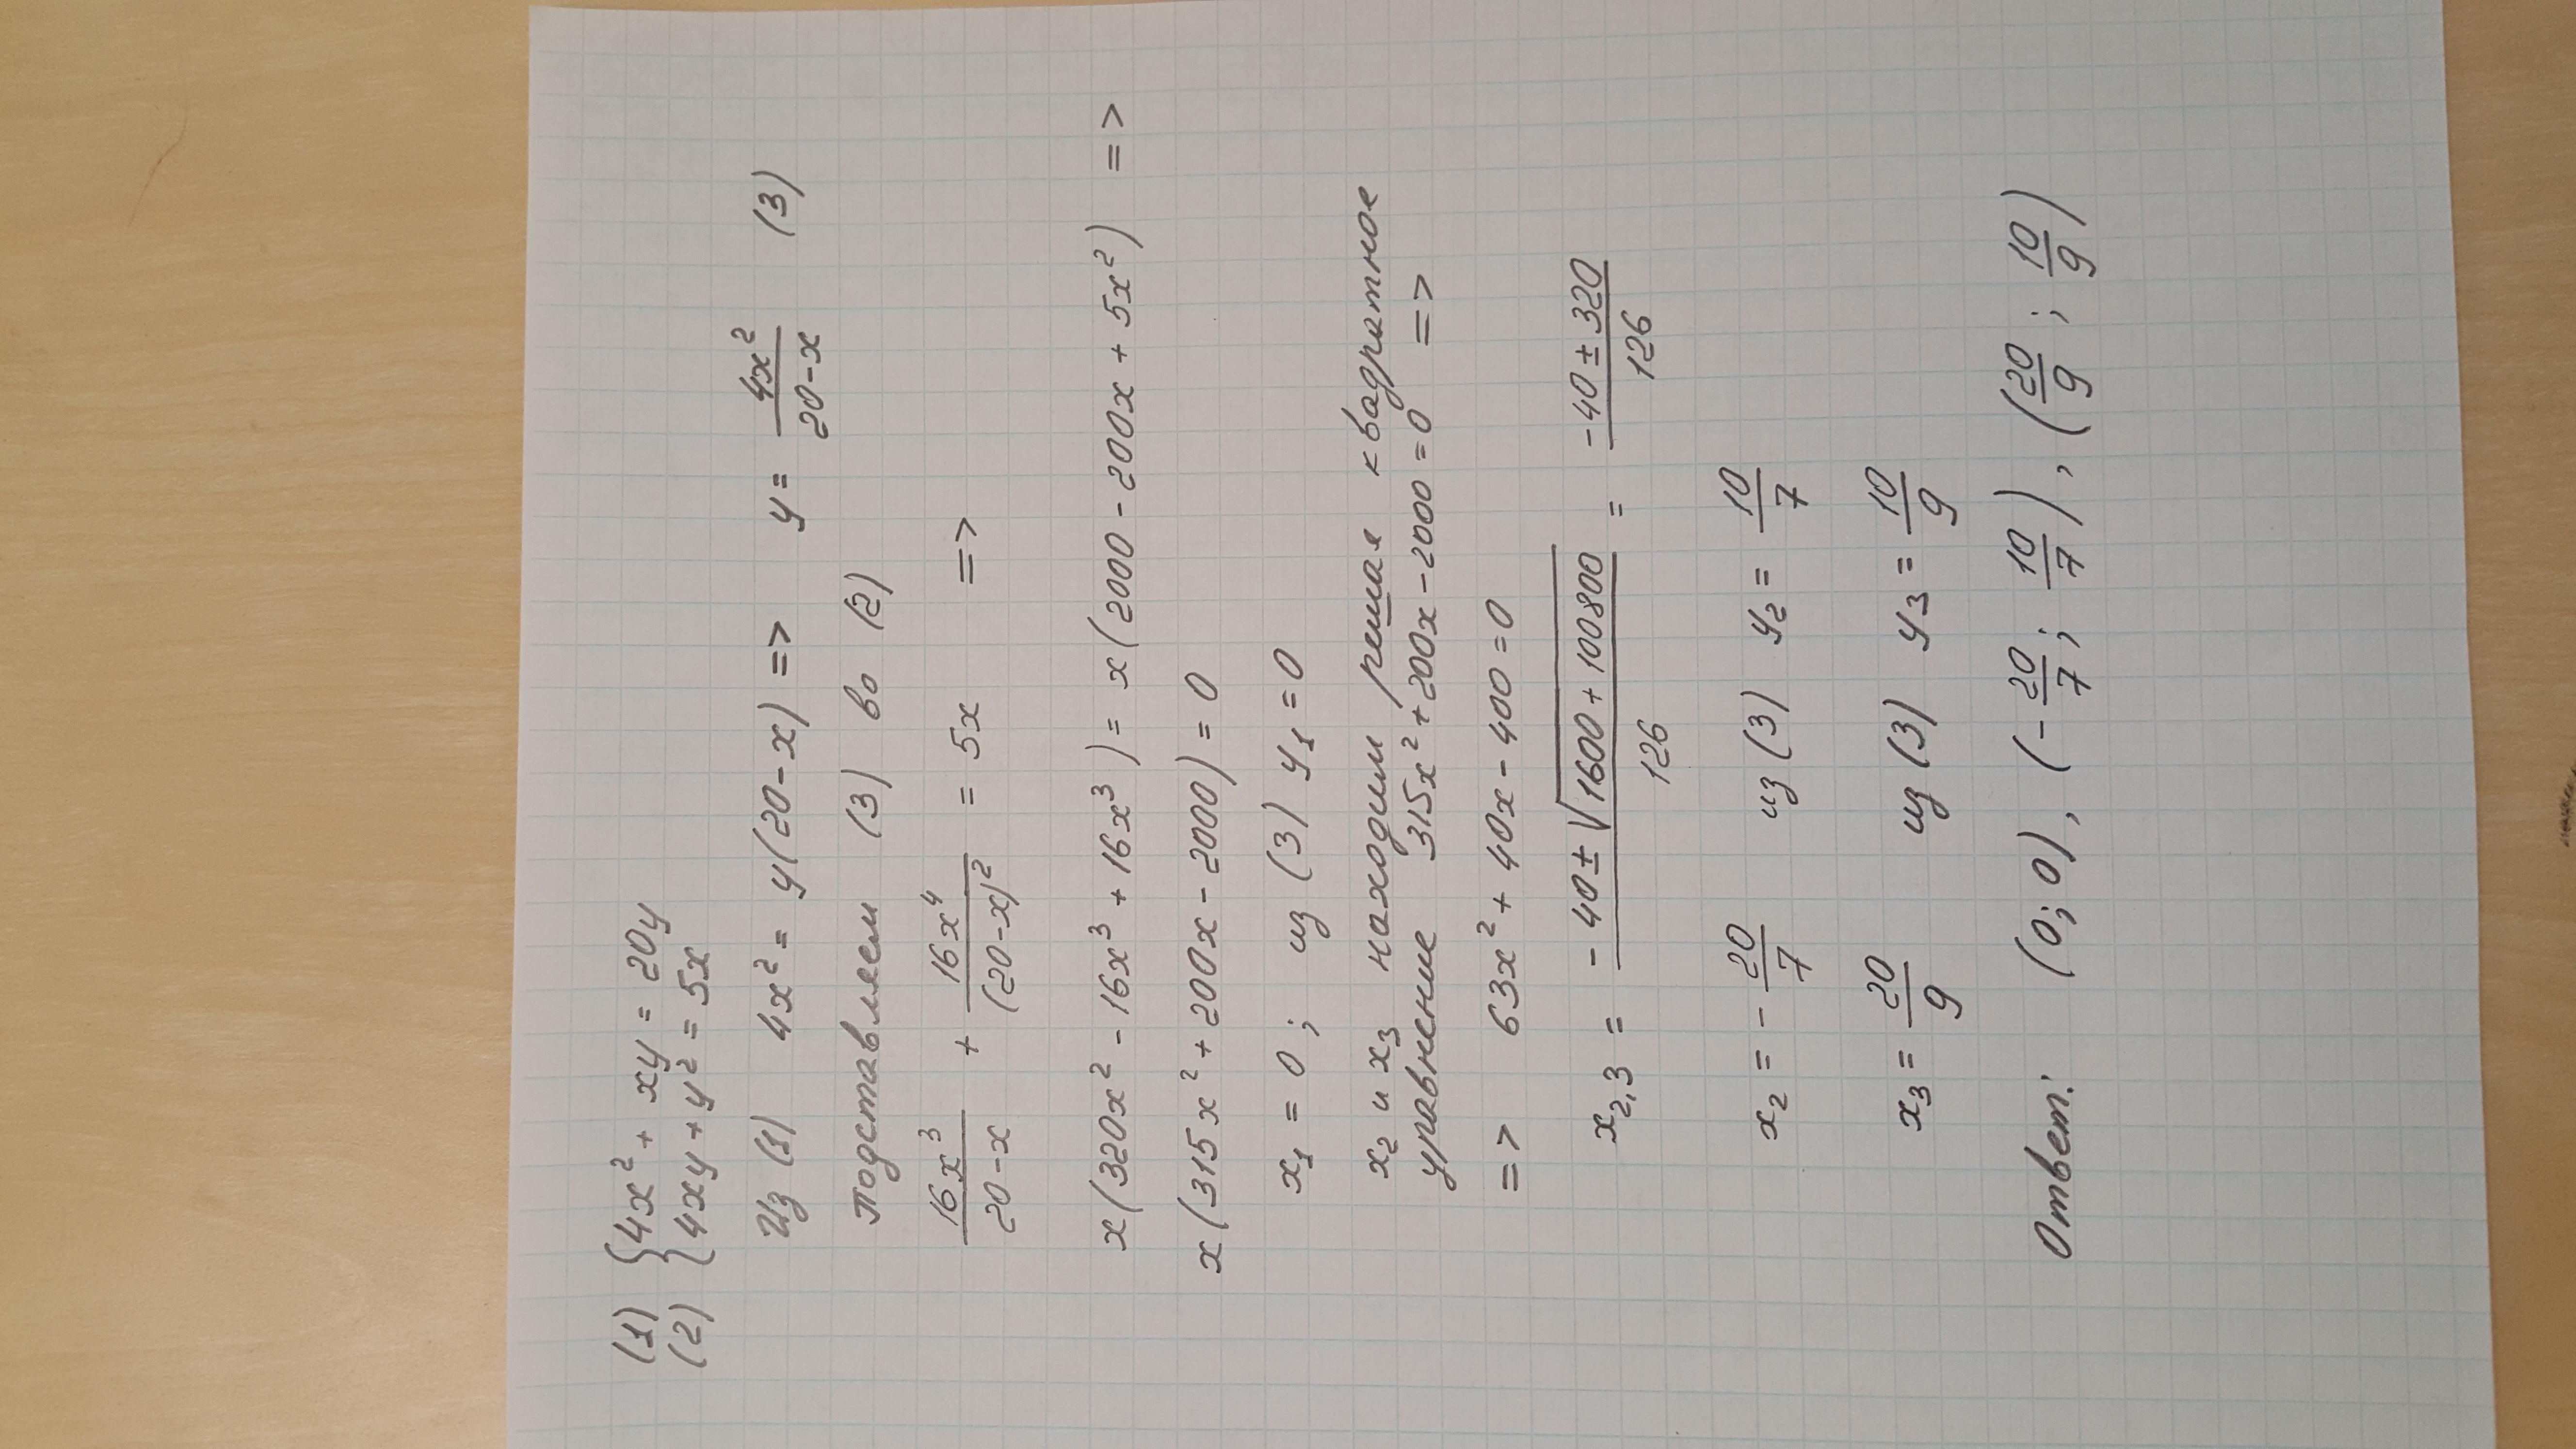 (1) {4x² + xy = 20y
(2) {4xy + y² = 5x
Из (1) 4x² = y(20-x) => y = 4x²/(20-x) (3)
Подставляем (3) во (2)
16x³/(20-x) + 16x⁴/(20-x)² = 5x =>
x(320x² - 16x³ + 16x³) = x(2000 - 200x + 5x²) =>
x(315x² + 200x - 2000) = 0
x₁ = 0; из (3) y₁ = 0
x₂ и x₃ находим решая квадратное
уравнение 315x² + 200x - 2000 = 0 =>
=> 63x² + 40x - 400 = 0
x₂,₃ = (-40 ± √(1600 + 100800))/126 = (-40 ± 320)/126
x₂ = -20/7 из (3) y₂ = 10/7
x₃ = 20/9 из (3) y₃ = 10/9
Ответ: (0; 0), (-20/7; 10/7), (20/9; 10/9)